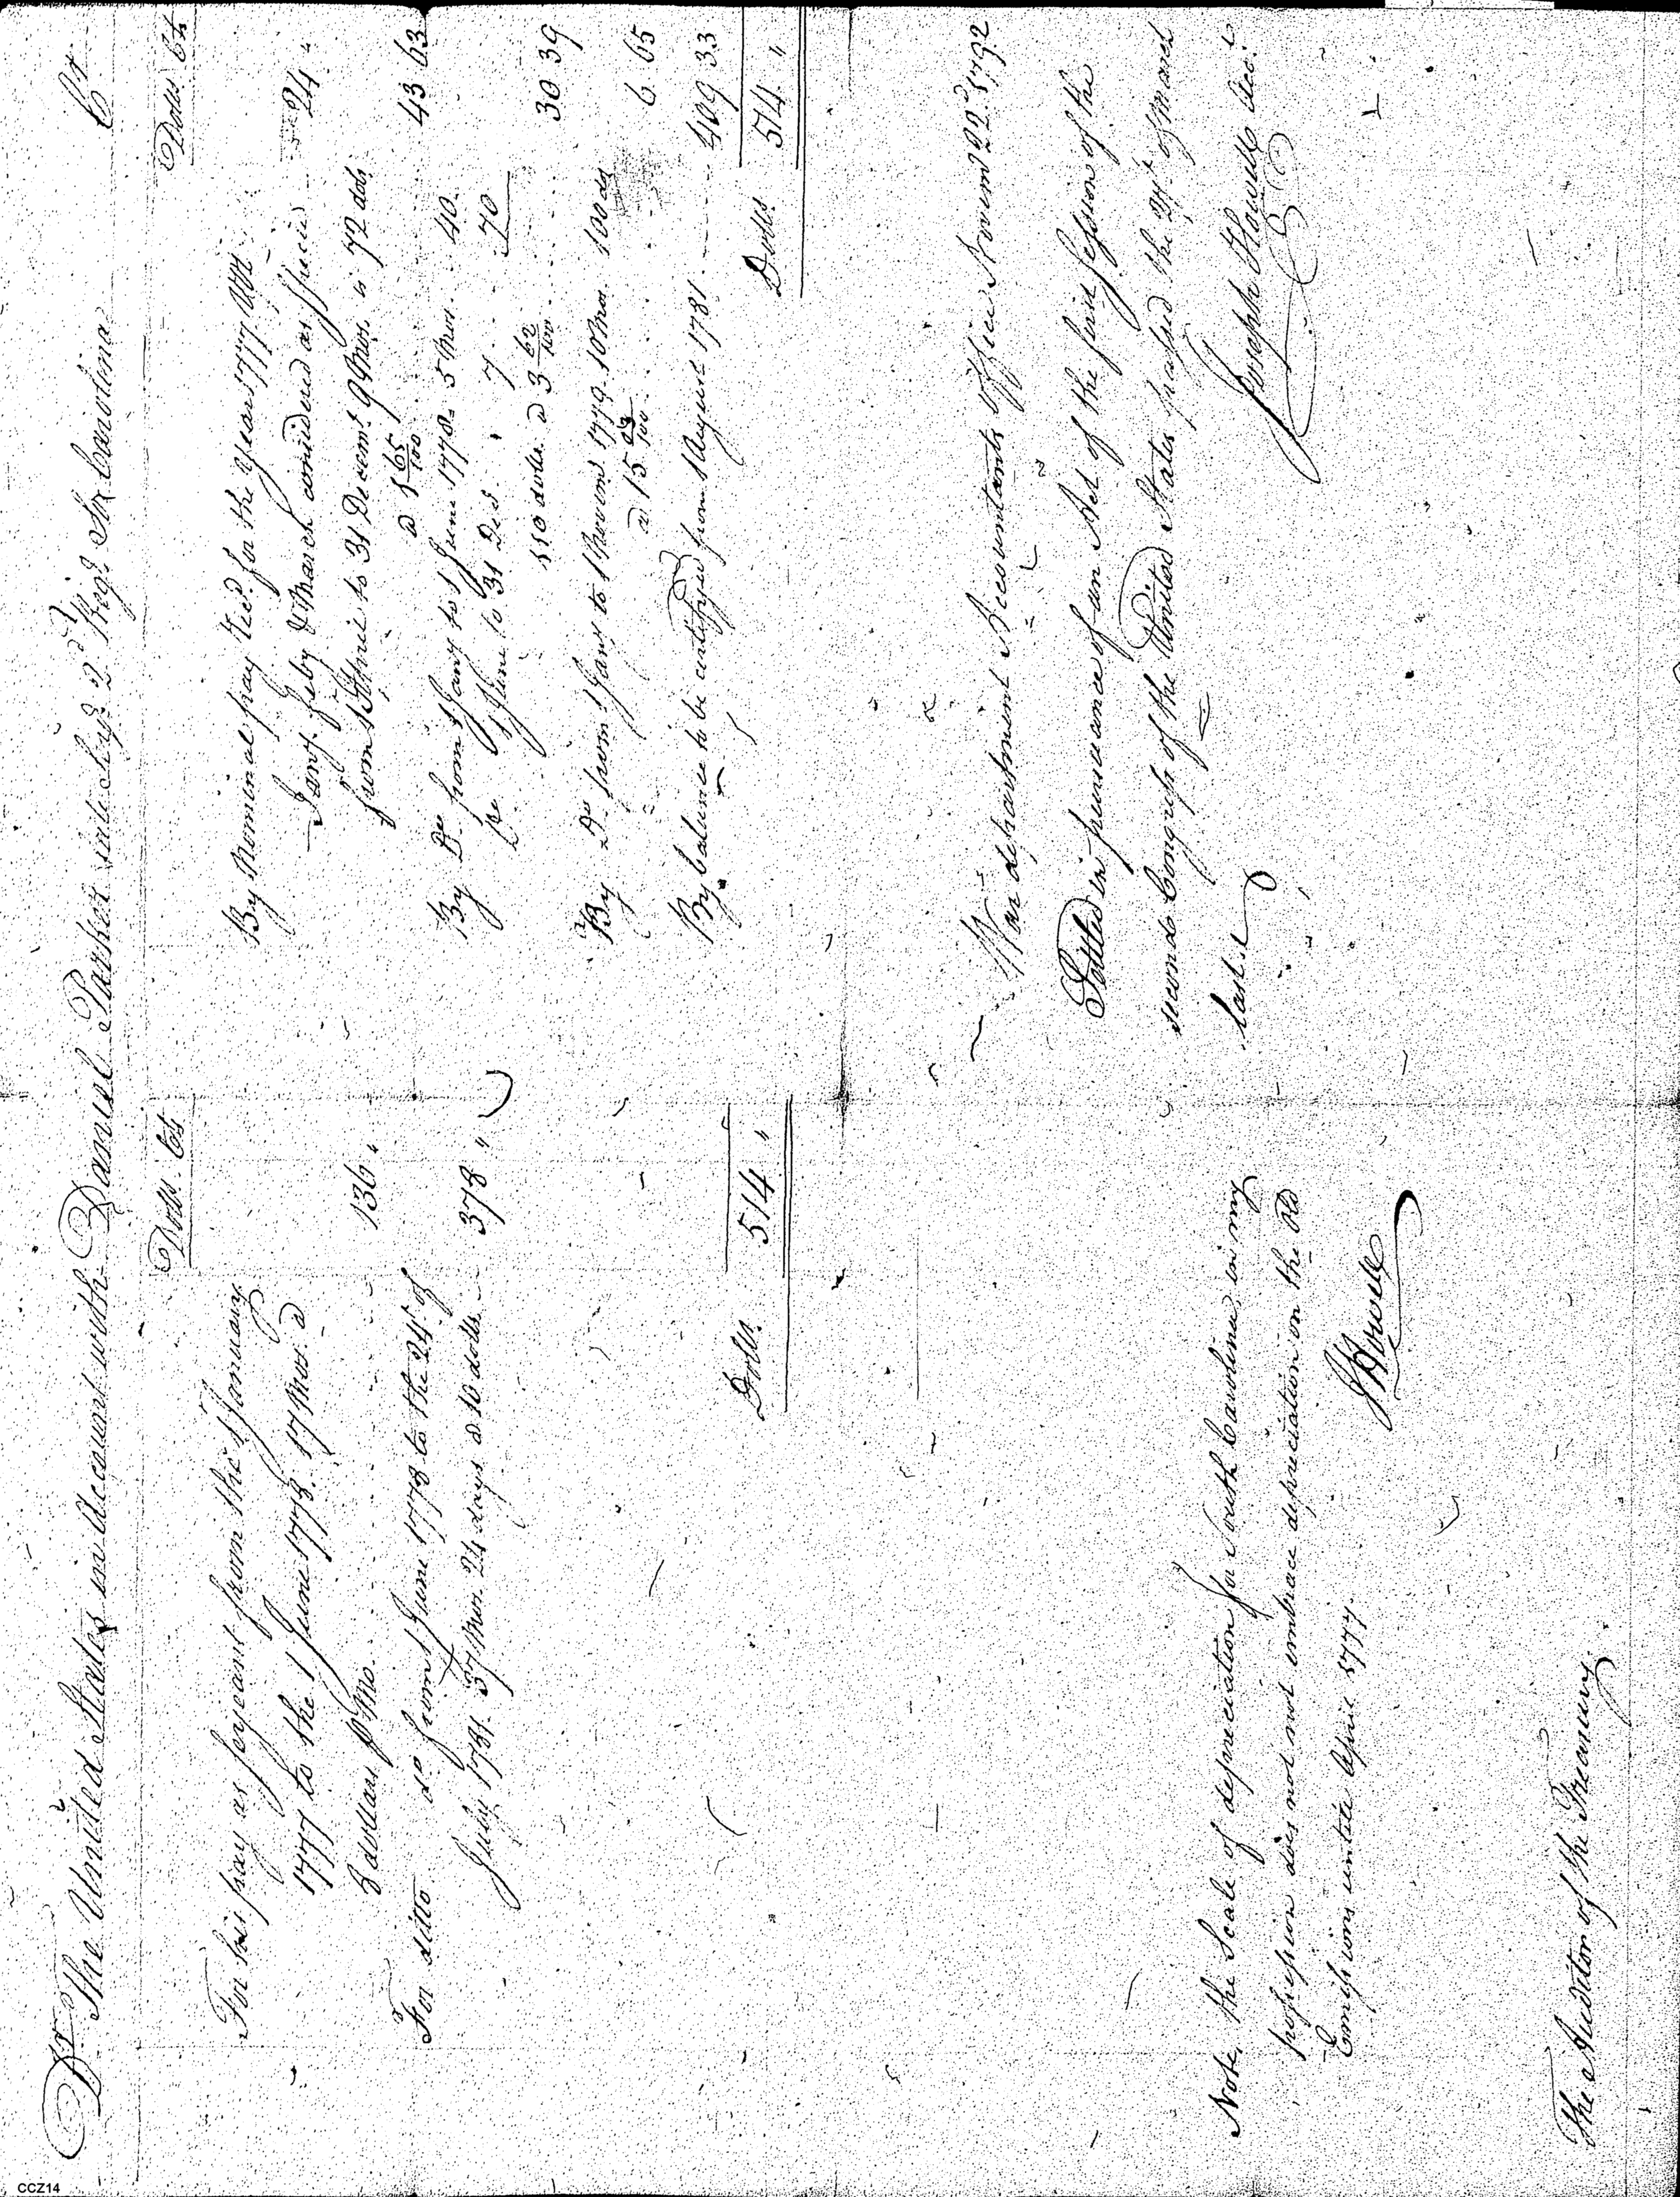 Dr. The United States in Account with Daniel Parker late Serjt. 2d. Regt. So. Carolina Cr.
Dolls. Cts
For his pay as serjeant from the 1 January
1777 to the 1 June 1778. 17 Mos. @
8 dollars P Mo. 136 "
For ditto do from 1 June 1778 to the 24th of
July 1781. 37 Mos. 24 days @ 10 dolls. 378 "
Dolls. 514 "
Dolls. Cts
By Nominal pay Recd. for the year 1777 Viz
Jany. Feby & March considered as Specie 24 "
from 1 April to 31 Decemr. 9 Mos. is 72 dols.
@ 1 65/100 43 63
By Do. from 1 Jany to 1 June 1778. 5 Mos. 40.
Do 1 June to 31 Decr. " 7 . . 70
110 dolls. @ 3 62/100 30 39
By Do from 1 Jany to 1 Novemr 1779. 10 Mos. 100 ds
@ 15 03/100 6 65
By balance to be certifyed from 1 August 1781 409 33
Dolls. 514 "
War department Accountants Office Novemr 22d. 1792
Settled in pursuance of an Act of the first Session of the
second Congress of the United States passed the 27th of March
last.
Joseph Howell Acct.
Note, the Scale of depreciation for South Carolina, in my
possession does not embrace depreciation on the Old
Emissions untill April 1777.
J Howell
The Auditor of the Treasury.
CCZ14